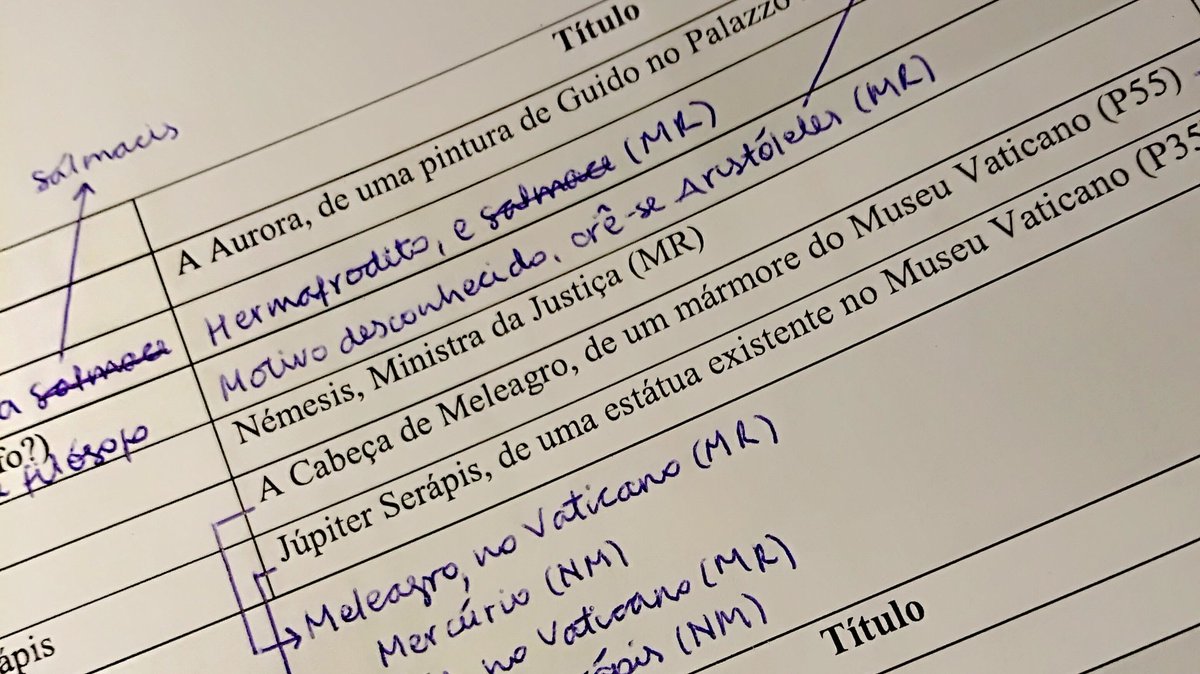 Título
Salmacis
A Aurora, de uma pintura de Guido no Palazzo
Hermafrodito, e salmace (MR)
a salmace
Motivo desconhecido, crê-se Aristóteles (MR)
fo?)
filósofo
Némesis, Ministra da Justiça (MR)
A Cabeça de Meleagro, de um mármore do Museu Vaticano (P55)
Júpiter Serápis, de uma estátua existente no Museu Vaticano (P35
Meleagro, no Vaticano (MR)
Mercúrio (NM)
no Vaticano (MR)
ápis (NM)
ápis
Título